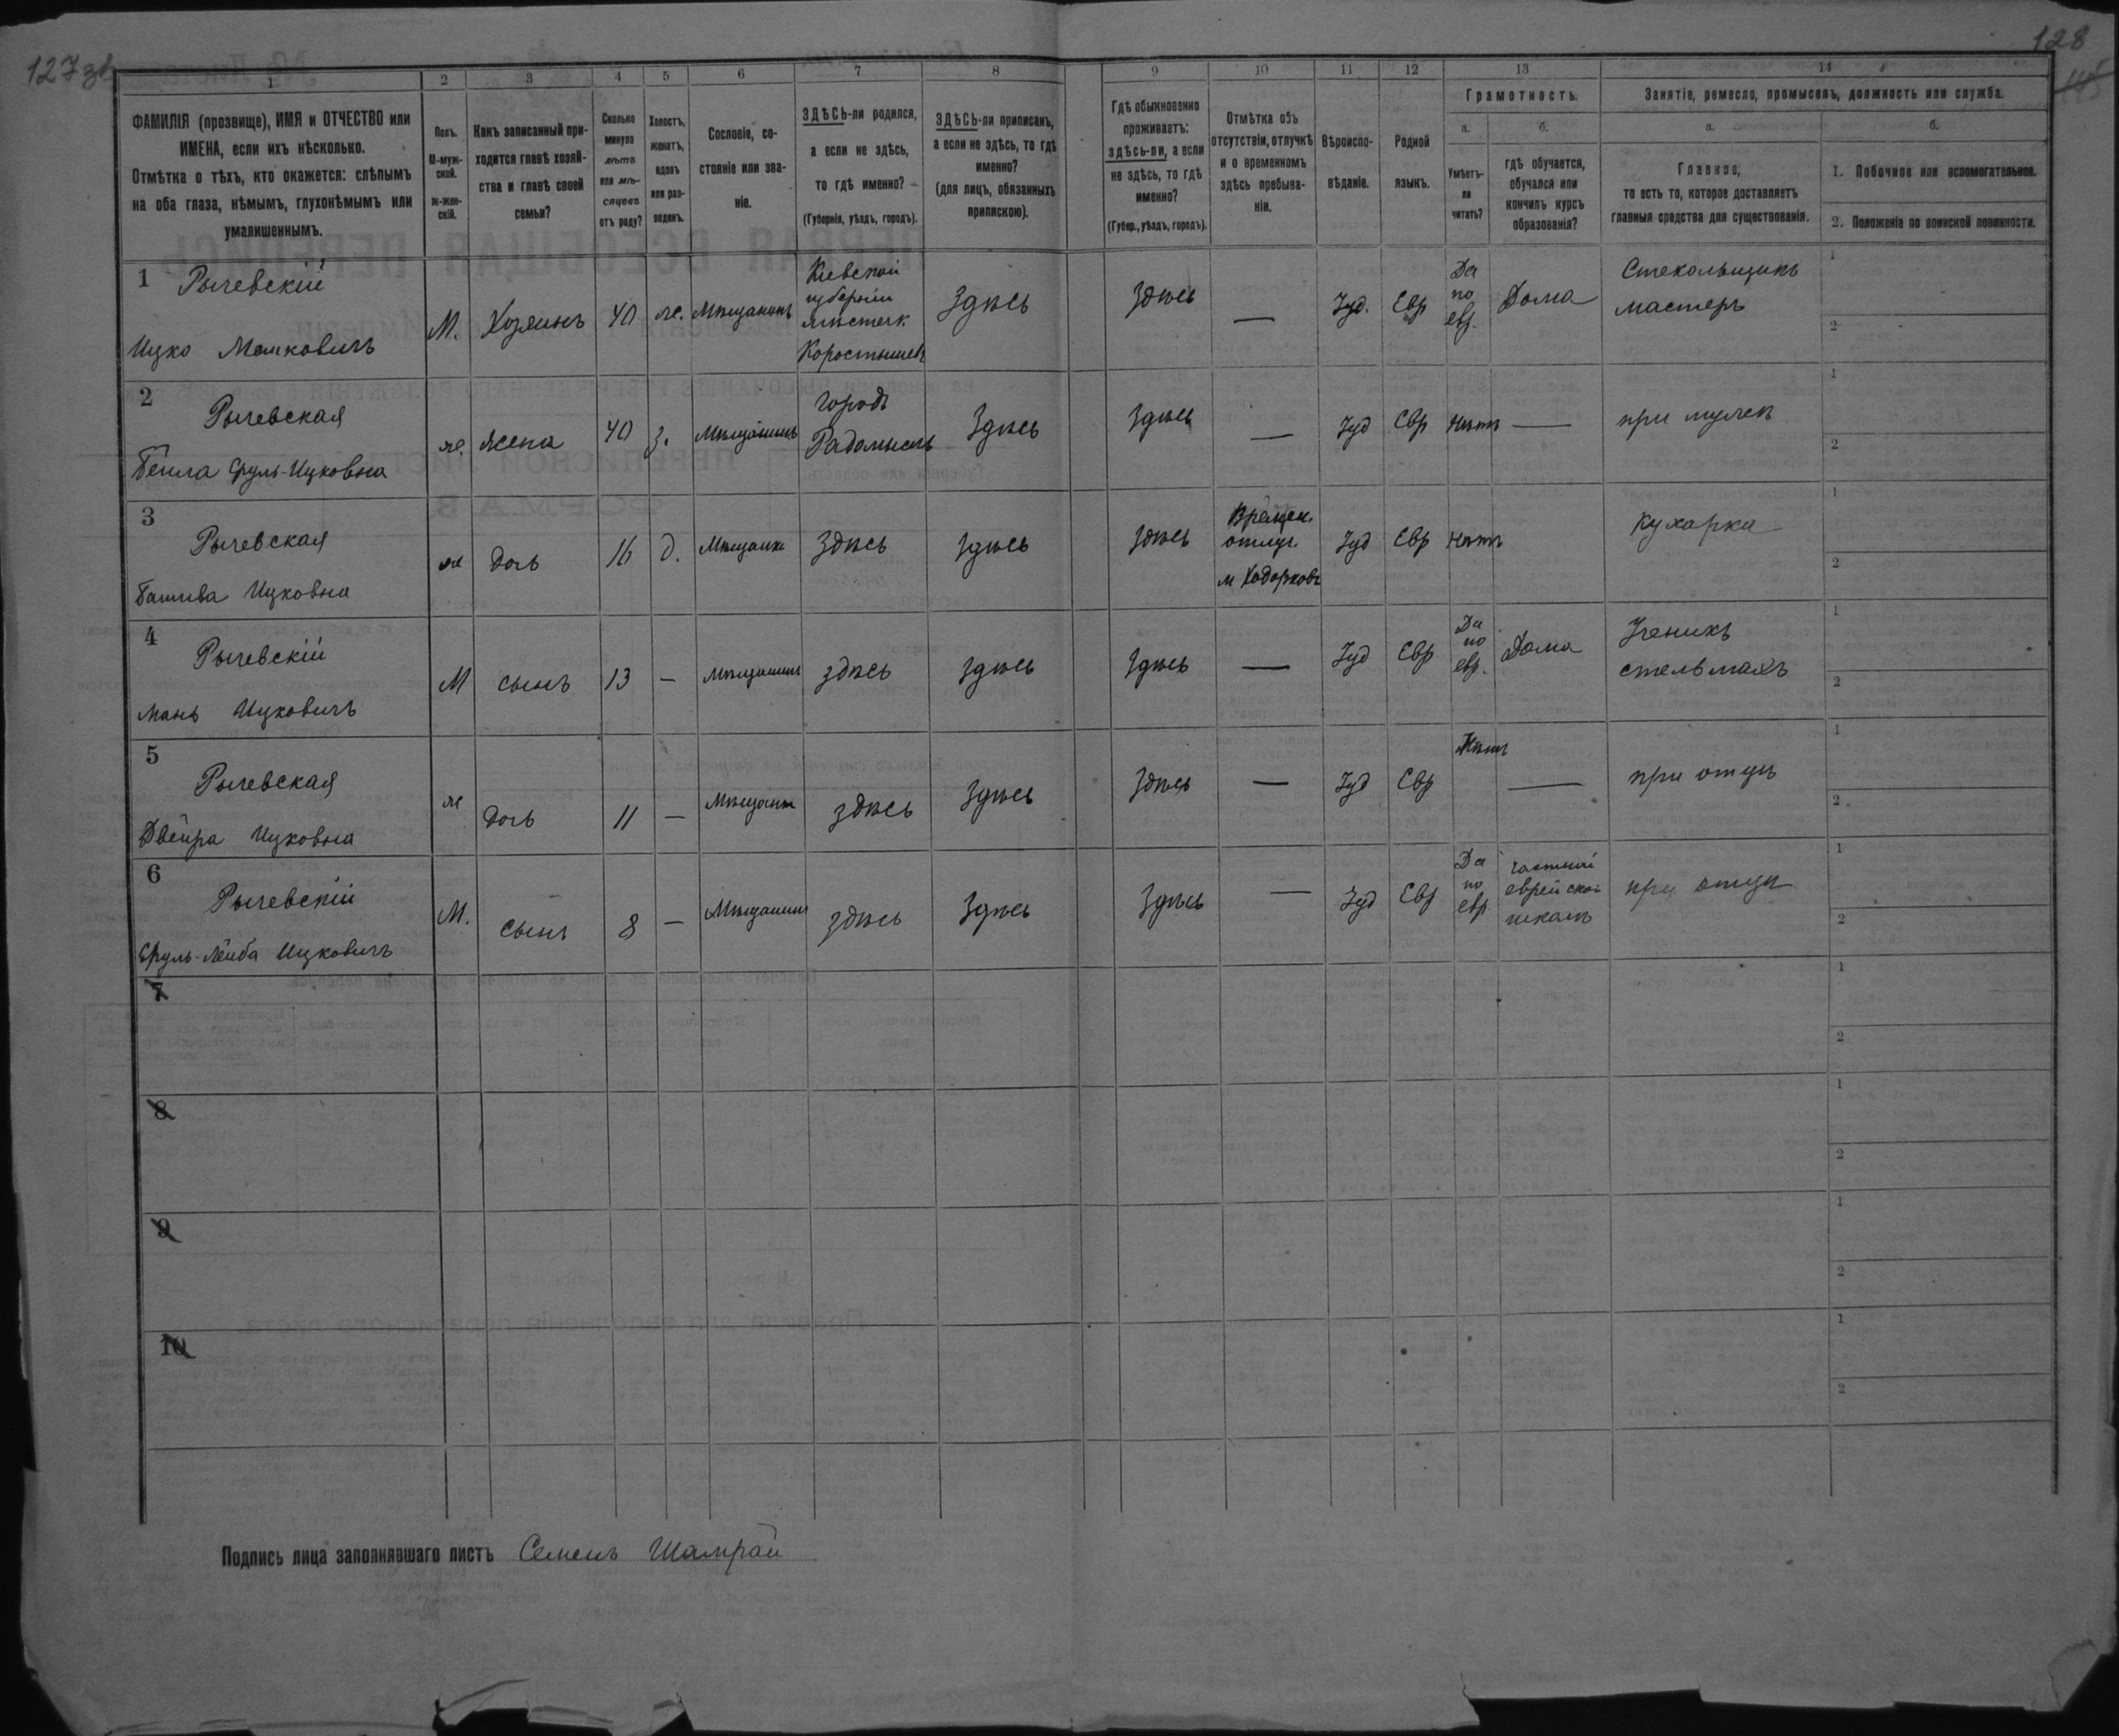 127 зв
128
1
2
3
4
5
6
7
8
9
10
11
12
13
14
ФАМИЛІЯ (прозвище), ИМЯ и ОТЧЕСТВО или
ИМЕНА, если ихъ нѣсколько.
Отмѣтка о тѣхъ, кто окажется: слѣпымъ
на оба глаза, нѣмымъ, глухонѣмымъ или
умалишеннымъ.
Полъ.
М-муж-
ской.
ж-жен-
скій.
Какъ записанный при-
ходится главѣ хозяй-
ства и главѣ своей
семьи?
Сколько
минуло
лѣтъ
или мѣ-
сяцевъ
отъ роду?
Холостъ,
женатъ,
вдовъ
или раз-
веденъ.
Сословіе, со-
стояніе или зва-
ніе.
ЗДѢСЬ-ли родился,
а если не здѣсь,
то гдѣ именно?
(Губернія, уѣздъ, городъ).
ЗДѢСЬ-ли приписанъ,
а если не здѣсь, то гдѣ
именно?
(для лицъ, обязанныхъ
припискою).
Гдѣ обыкновенно
проживаетъ:
здѣсь-ли, а если
не здѣсь, то гдѣ
именно?
(Губер., уѣздъ, городъ).
Отмѣтка объ
отсутствіи, отлучкѣ
и о временномъ
здѣсь пребыва-
ніи.
Вѣроиспо-
вѣданіе.
Родной
языкъ.
Грамотность.
а.
б.
Умѣетъ-
ли
читать?
гдѣ обучается,
обучался или
кончилъ курсъ
образованія?
Занятіе, ремесло, промыселъ, должность или служба.
а.
б.
Главное,
то есть то, которое доставляетъ
главныя средства для существованія.
1. Побочное или вспомогательное.
2. Положеніе по воинской повинности.
1 Рычевскій
Ицко Мошковичъ
М.
Хозяинъ
40
же.
Мѣщанинъ
Кіевской
губерніи
мѣстечк.
Коростышевъ
Здѣсь
Здѣсь
—
Іуд.
Евр
Да
по
евр.
Дома
Стекольщикъ
мастеръ
1
2
2 Рычевская
Бейла Сруль-Ицковна
же.
жена
40
з.
Мѣщанинъ
городъ
Радомысль
Здѣсь
Здѣсь
—
Іуд
Евр
Нѣтъ
—
при мужѣ
1
2
3 Рычевская
Башева Ицковна
же
дочь
16
д.
Мѣщанк
Здѣсь
Здѣсь
Здѣсь
Времен.
отлуч.
м Ходорковъ
Іуд
Евр
Нѣтъ
Кухарка
1
2
4 Рычевскій
Мань Ицковичъ
М
сынъ
13
—
Мѣщанинъ
здѣсь
здѣсь
здѣсь
—
Іуд
Евр
Да
по
евр.
Дома
Ученикъ
стельмахъ
1
2
5 Рычевская
Двейра Ицковна
же
дочь
11
—
Мѣщанк
здѣсь
Здѣсь
Здѣсь
—
Іуд
Евр
Нѣтъ
—
при отцѣ
1
2
6 Рычевскій
Сруль-Лейба Ицковичъ
М.
сынъ
8
—
Мѣщанинъ
здѣсь
Здѣсь
Здѣсь
—
Іуд
Евр
Да
по
евр
частной
еврейской
школѣ
при отцѣ
1
2
7
1
2
8
1
2
9
1
2
10
1
2
Подпись лица заполнявшаго листъ Семенъ Шамрай